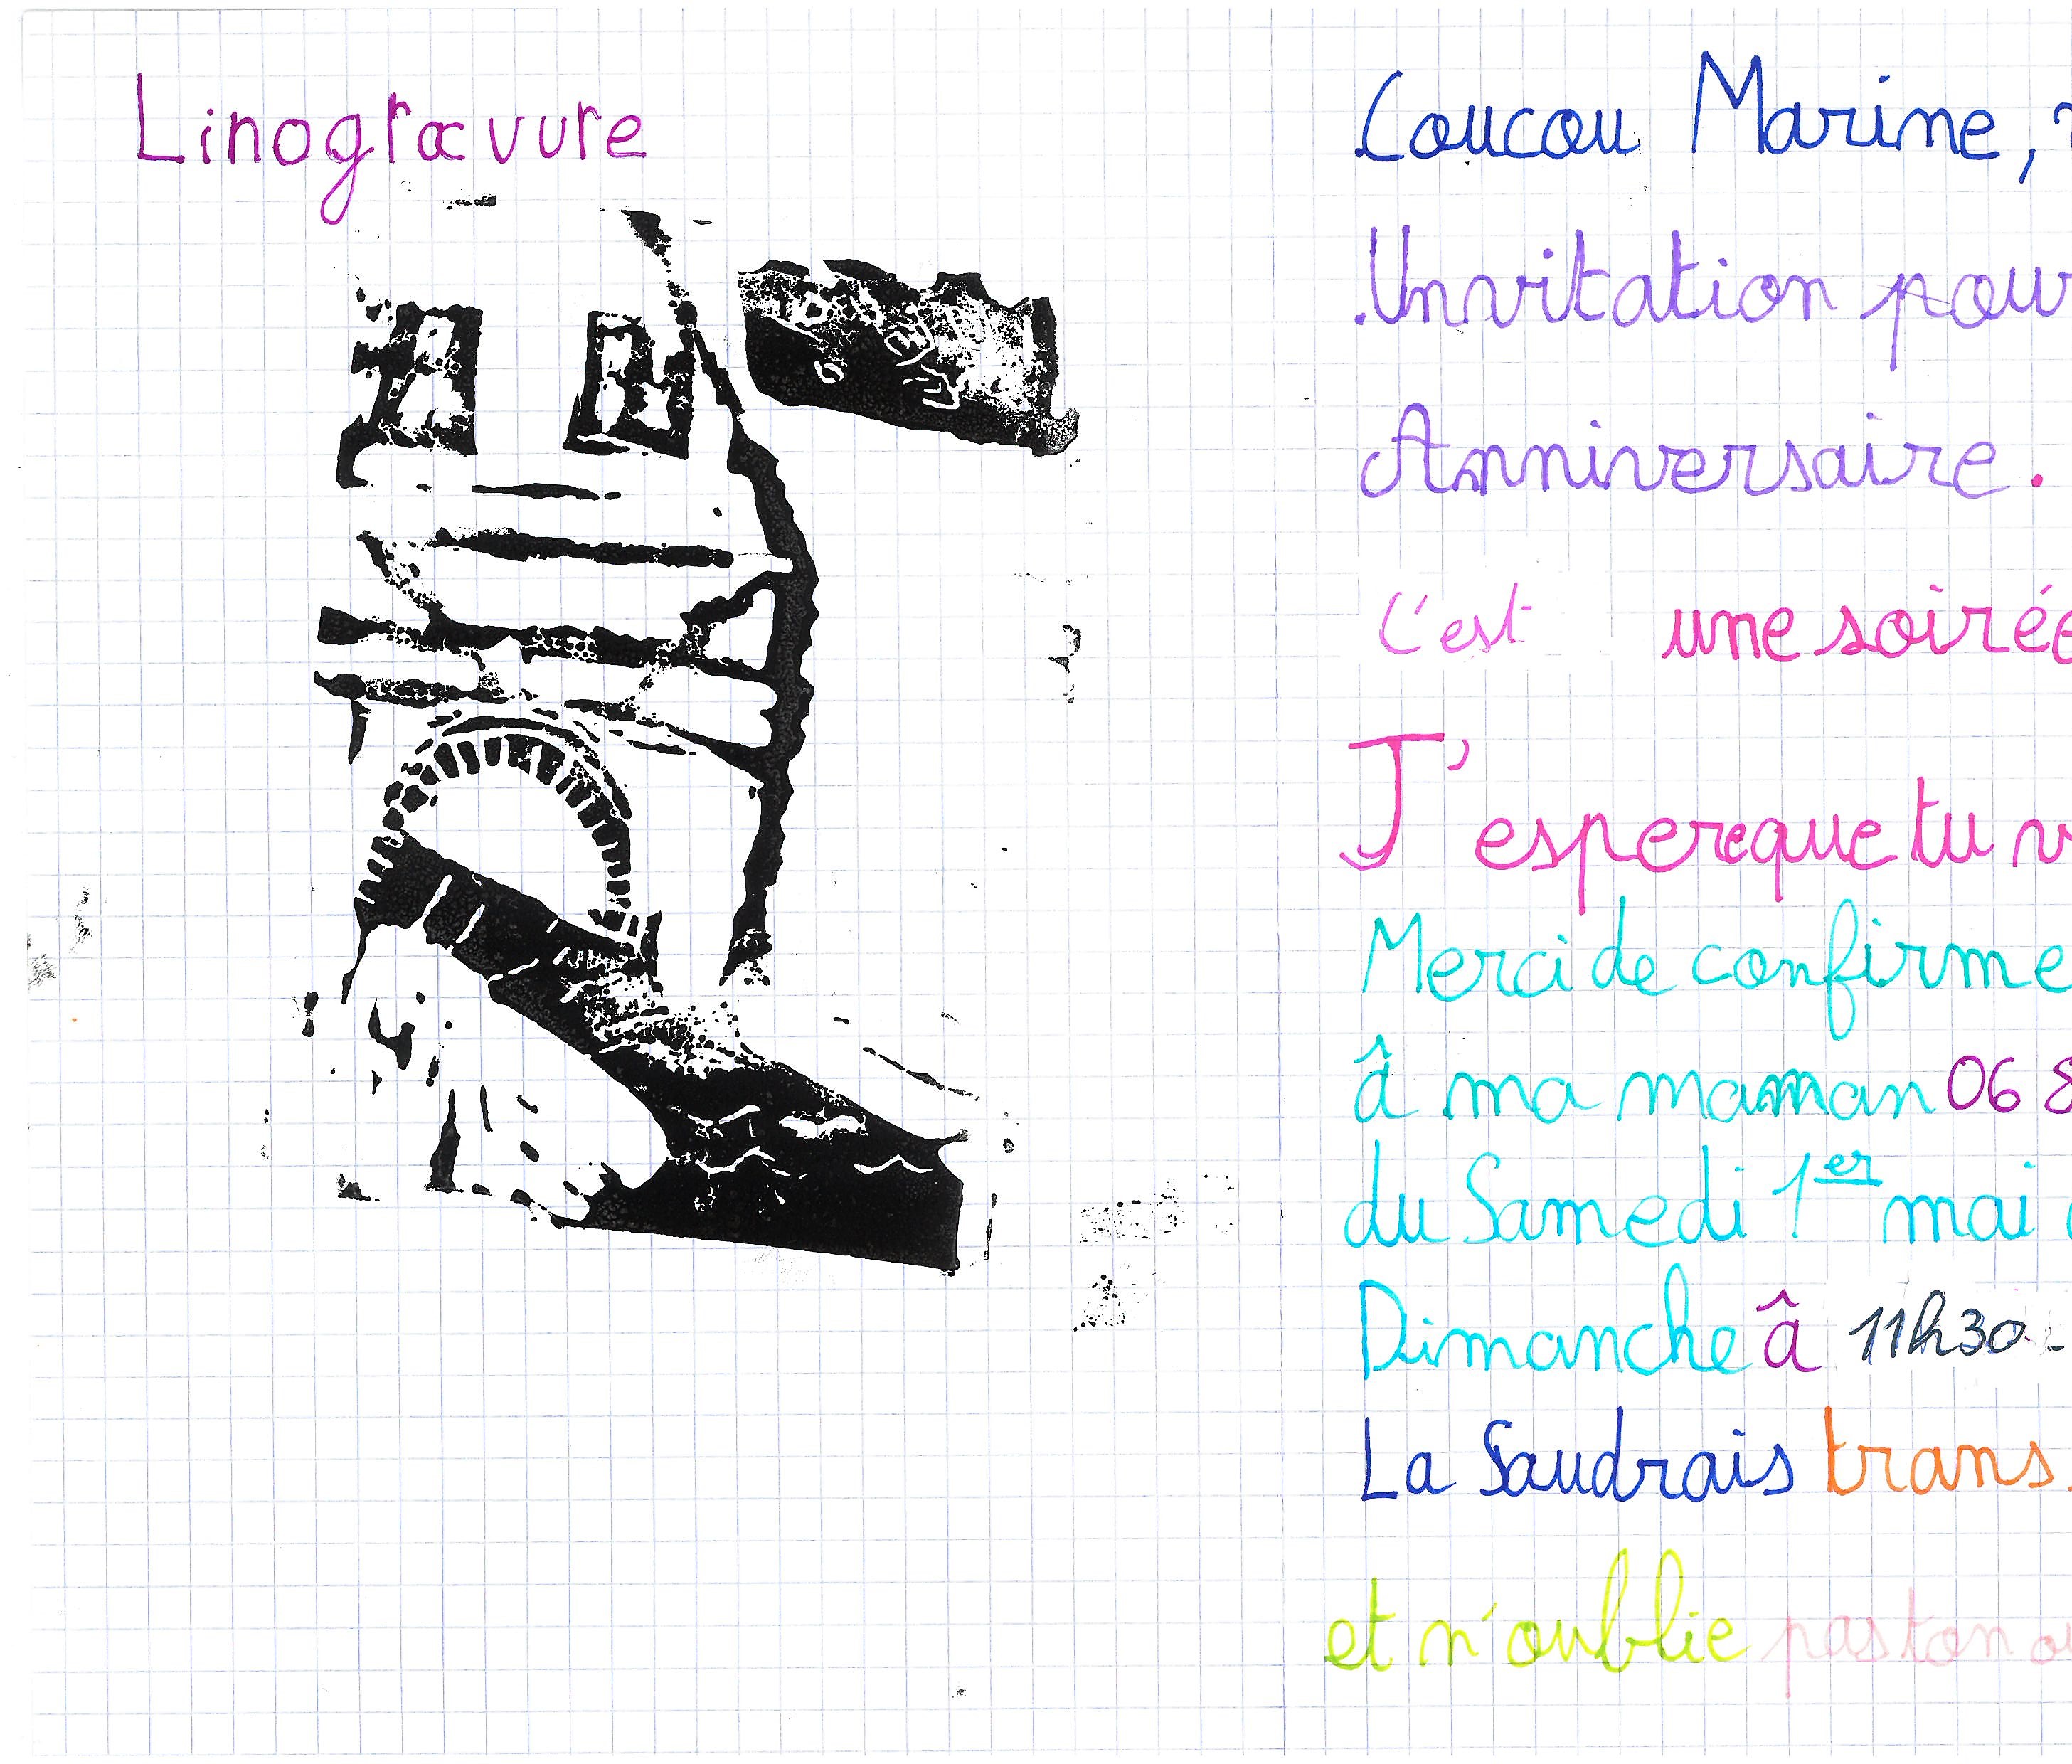 Linogravure
Coucou Marine,
Invitation pour
Anniversaire.
C'est une soirée
J'espereque tu v
Merci de confirme
â ma maman 06 8
du Samedi 1er mai
Dimanche â 11h30
La Saudrais trans.
et n'oublie pas ton o